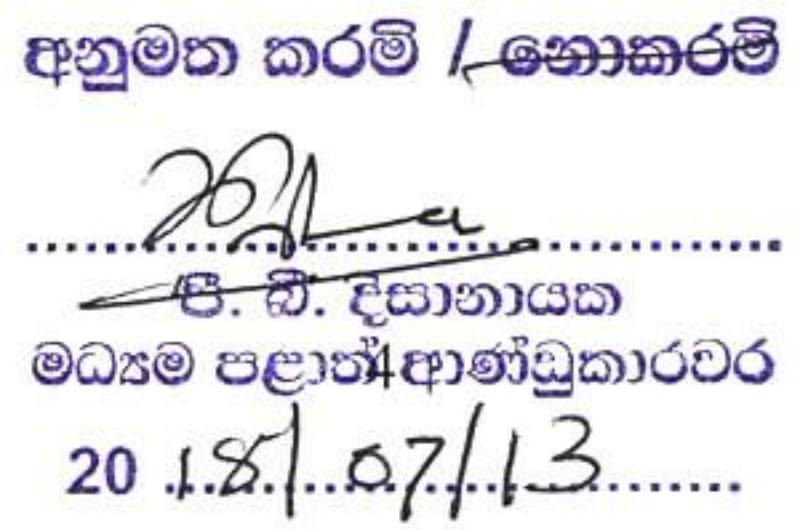 අනුමත කරමි / නොකරමි
පී. බී. දිසානායක
මධ්‍යම පළාත් ආණ්ඩුකාරවර
20 18/07/13